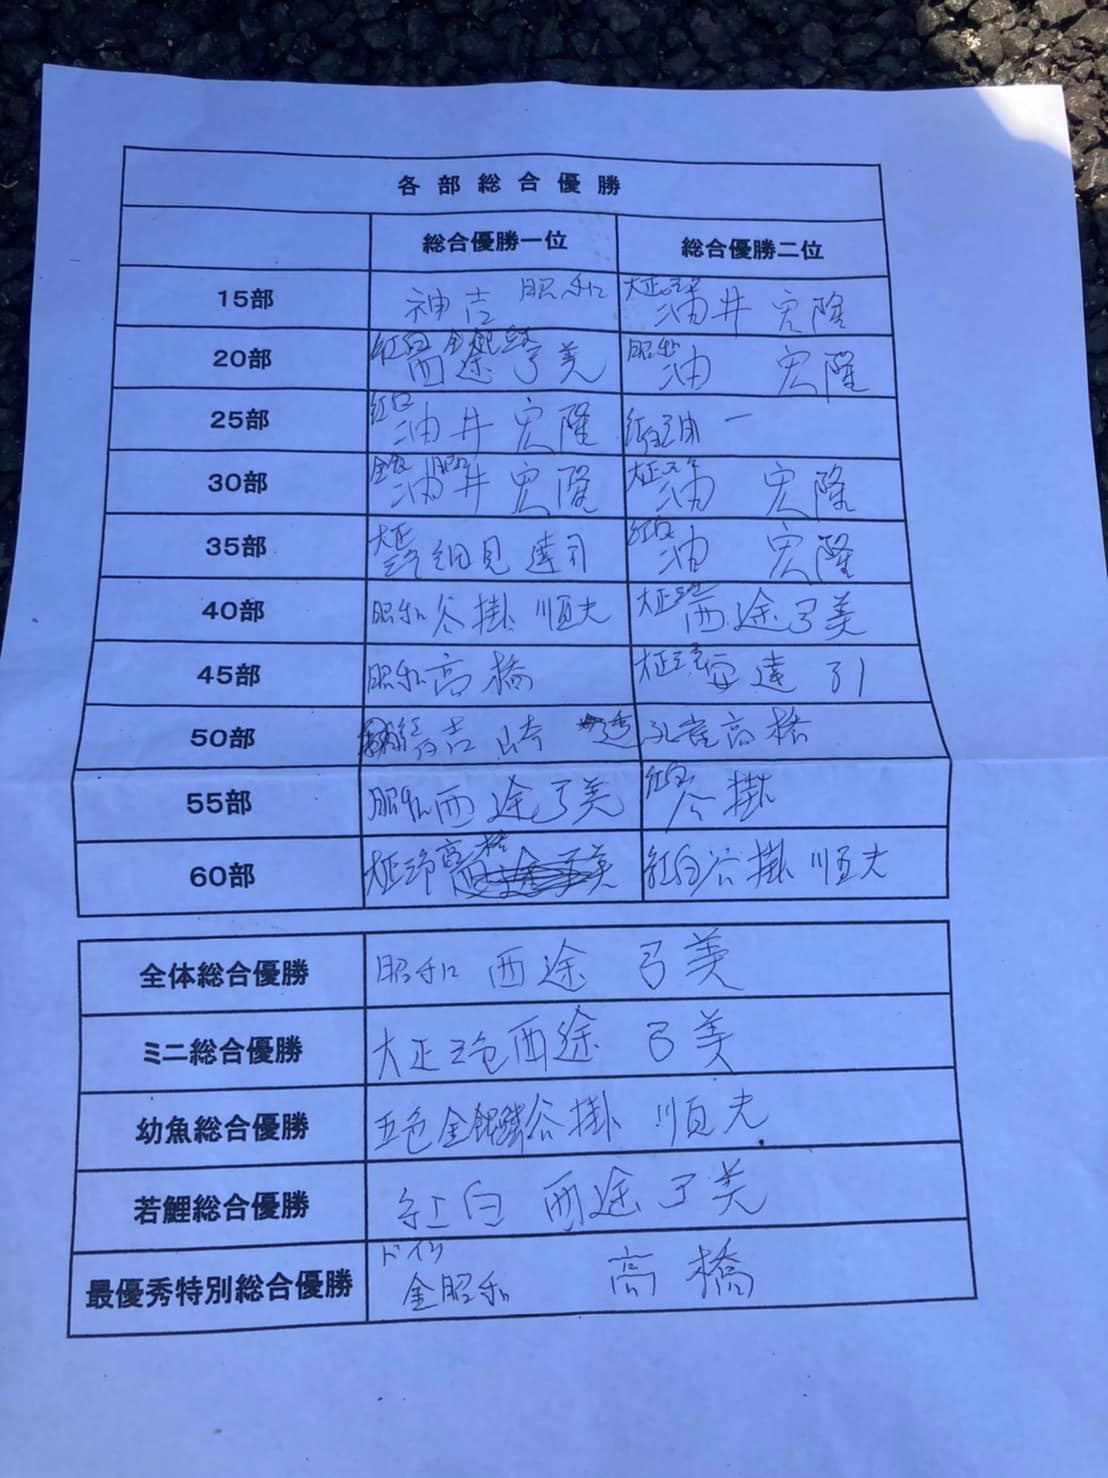 各部総合優勝
総合優勝一位 総合優勝二位
15部 神吉 昭和 大正三色 油井 宏隆
20部 紅白 金銀鱗 西途弓美 昭和 油 宏隆
25部 紅白 油井 宏隆 紅白 油 一
30部 昭和 油井 宏隆 大正三色 油 宏隆
35部 大正三色 細見 達司 紅白 油 宏隆
40部 昭和 谷掛 順夫 大正三色 西途弓美
45部 昭和 高橋 大正三色 安達 引
50部 紅白 吉崎 透 孔雀 高橋
55部 昭和 西途弓美 紅白 谷掛
60部 大正三色 高橋 紅白 谷掛 順夫
全体総合優勝 昭和 西途 弓美
ミニ総合優勝 大正三色 西途 弓美
幼魚総合優勝 五色金銀鱗 谷掛 順夫
若鯉総合優勝 紅白 西途弓美
最優秀特別総合優勝 ドイツ 金昭和 高橋